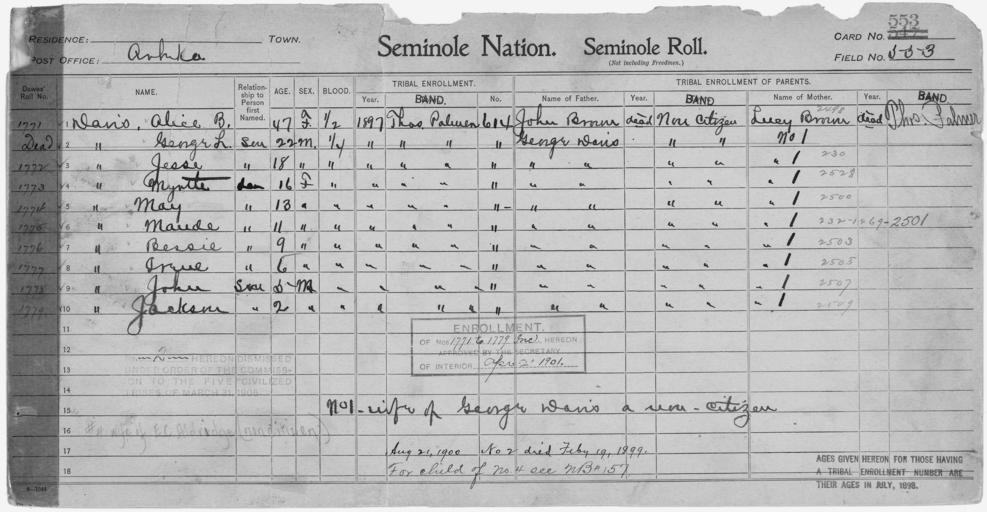 553
RESIDENCE: TOWN. Seminole Nation. Seminole Roll. CARD No.
(Not including Freedmen.)
POST OFFICE: Arbeka FIELD No. 553
Dawes' Roll No. NAME. Relationship to Person first Named. AGE. SEX. BLOOD. TRIBAL ENROLLMENT. TRIBAL ENROLLMENT OF PARENTS.
Year. BAND. No. Name of Father. Year. BAND Name of Mother. Year. BAND
1771 1 Davis, Alice B. 47 F 1/2 1897 Thos. Palmer 614 John Brown dead Non Citizen Lucy Brown dead Thos. Palmer
Dead 2 " George L. Son 22 M. 1/4 " " " " George Davis " " No 1
1772 3 " Jesse " 18 " " " " " " " " " " " 1 230
1773 4 " Myrtte dau 16 F " " " " " " " " " " 1 2529
1774 5 " May " 13 " " " " " " " " " " " 1 2500
1775 6 " Maude " 11 " " " " " " " " " " " 1 232-1269-2501
1776 7 " Bessie " 9 " " " " " " " " " " " 1 2503
1777 8 " Irene " 6 " " " " " " " " " " " 1 2505
1778 9 " John Son 5 M " " " " " " " " " " 1 2507
1779 10 " Jackson " 2 " " " " " " " " " " " 1 2509
11
ENROLLMENT.
OF Nos 1771 to 1779 Inc. HEREON
12 APPROVED BY THE SECRETARY
OF INTERIOR Apr 2 1901.
2 HEREON DISMISSED
13 UNDER ORDER OF THE COMMISSION TO THE FIVE CIVILIZED
TRIBES OF MARCH 31, 1905
14
15 No 1 - wife of George Davis a non-citizen
16
17 Aug 21, 1900 No 2 died Feby 19, 1899.
18 For child of No 4 see NB# 157
AGES GIVEN HEREON FOR THOSE HAVING
A TRIBAL ENROLLMENT NUMBER ARE
THEIR AGES IN JULY, 1898.